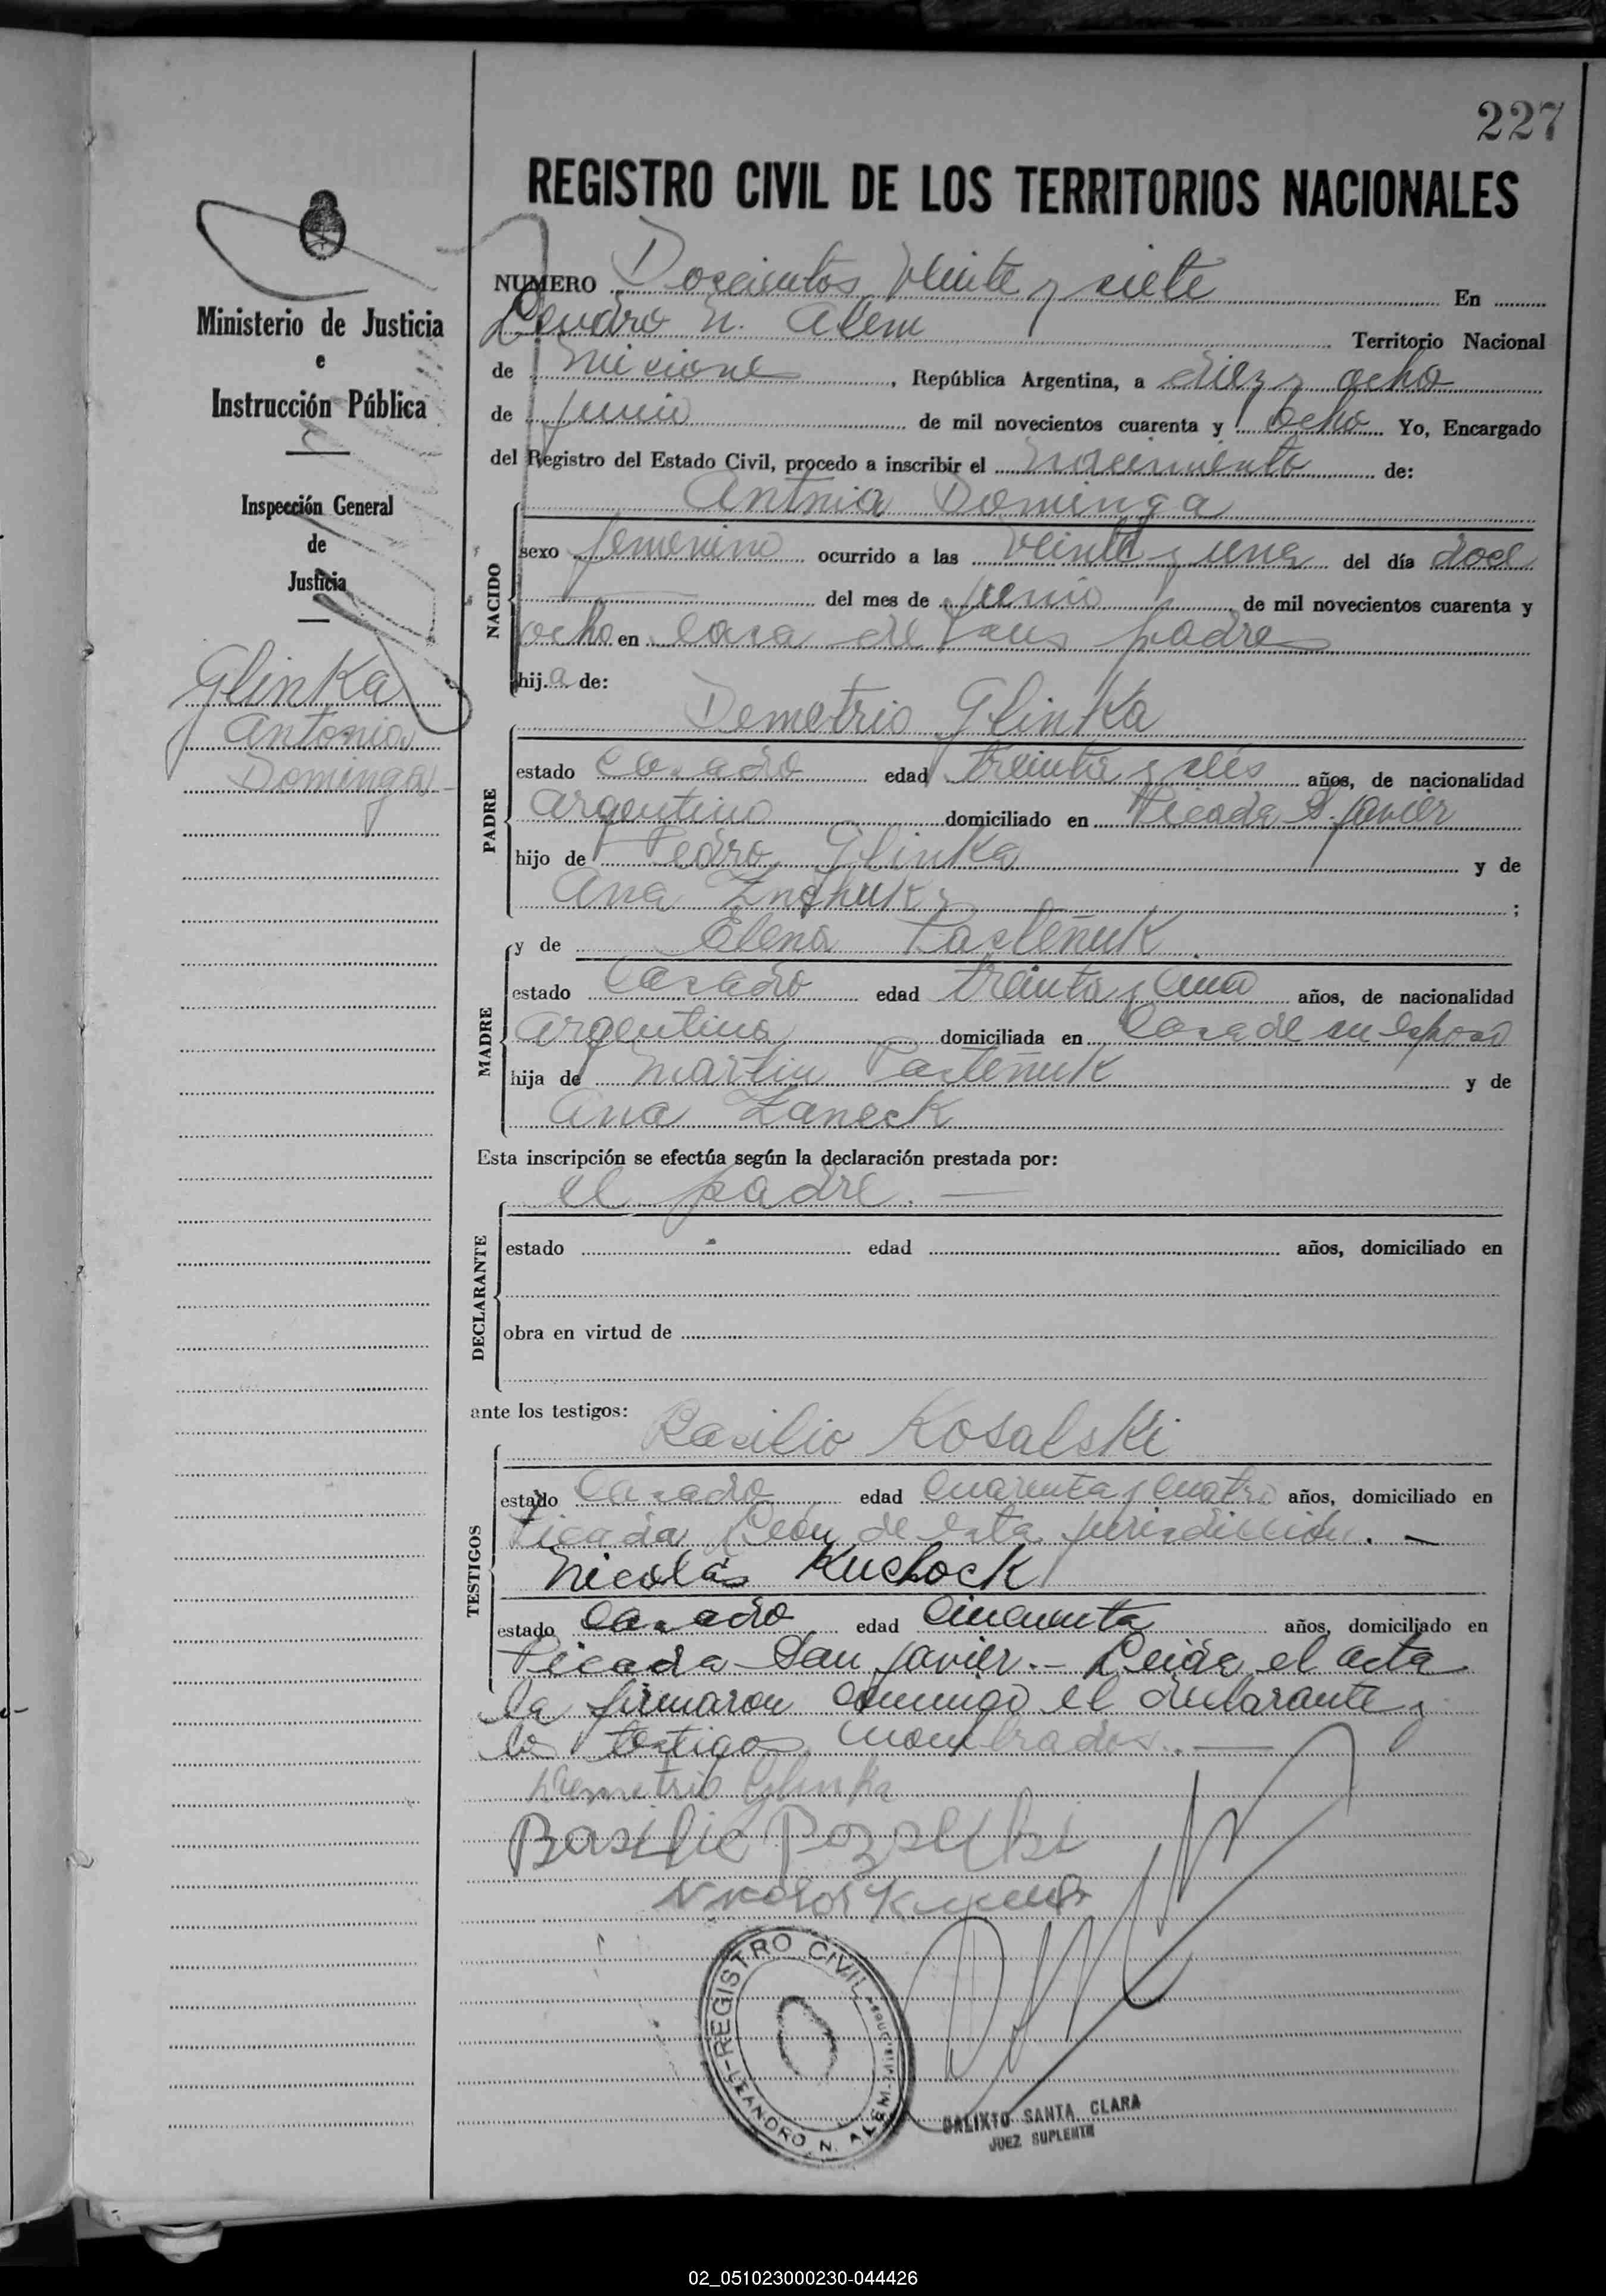 227
REGISTRO CIVIL DE LOS TERRITORIOS NACIONALES
Ministerio de Justicia
e
Instrucción Pública
Inspección General
de
Justicia
Glinka
Antonia
Dominga
NUMERO Doscientos Veinte y siete En
Leandro N. Alem Territorio Nacional
de Misiones, República Argentina, a diez y ocho
de junio de mil novecientos cuarenta y ocho Yo, Encargado
del Registro del Estado Civil, procedo a inscribir el nacimiento de:
NACIDO
Antnia Dominga
sexo femenino ocurrido a las veinte y una del día doce
del mes de junio de mil novecientos cuarenta y
ocho en casa de sus padres
hija de:
PADRE
Demetrio Glinka
estado casado edad treinta y seis años, de nacionalidad
argentino domiciliado en Picada S. Javier
hijo de Pedro Glinka y de
Ana ;
MADRE
y de Elena Pasteñuk
estado Casado edad treinta y una años, de nacionalidad
argentina domiciliada en casa de su esposo
hija de Martin Pasteñuk y de
Ana Zaneck
Esta inscripción se efectúa según la declaración prestada por:
DECLARANTE
el padre.
estado edad años, domiciliado en
obra en virtud de
ante los testigos:
TESTIGOS
Basilio Kosalski
estado Casado edad cuarenta y cuatro años, domiciliado en
Picada León de esta jurisdicción. -
Nicolás Kuchock
estado casado edad cincuenta años, domiciliado en
Picada San Javier.- Leida el acta
la firmaron conmigo el declarante y
los testigos nombrados.. —
Demetrio Glinka
Basilio
REGISTRO CIVIL
LEANDRO N. ALEM
CALIXTO SANTA CLARA
JUEZ SUPLENTE
02_051023000230-044426